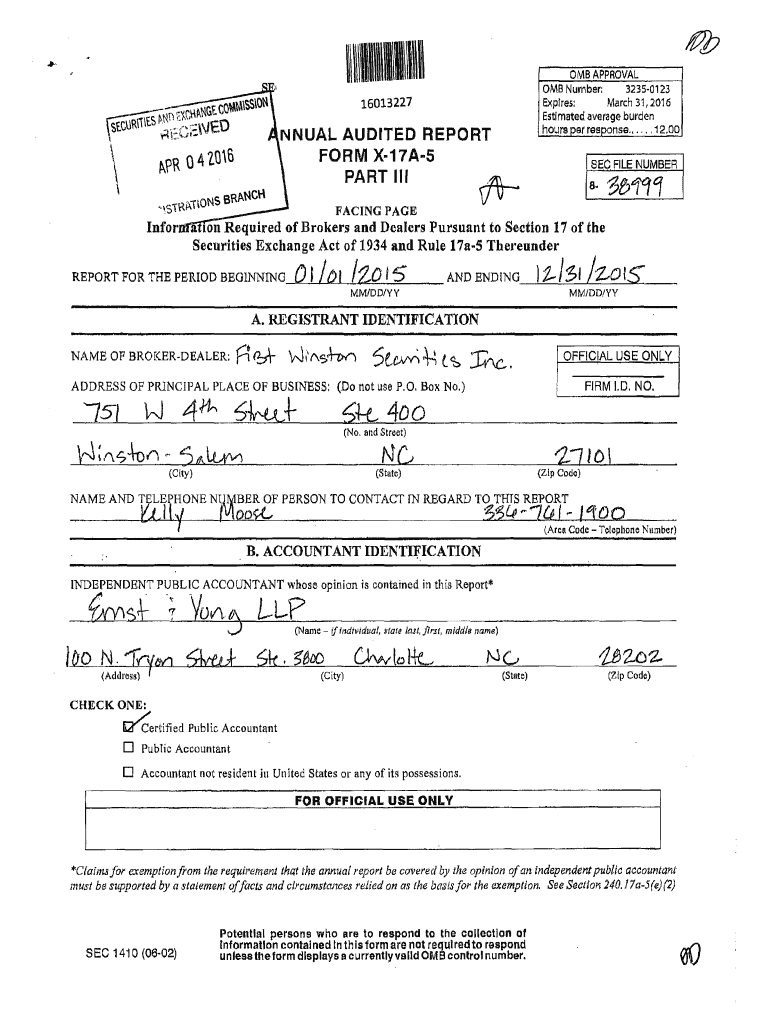 SE
16013227
SECURITIES AND EXCHANGE COMMISSION
RECEIVED
APR 04 2016
REGISTRATIONS BRANCH
ANNUAL AUDITED REPORT
FORM X-17A-5
PART III
OMB APPROVAL
OMB Number: 3235-0123
Expires: March 31, 2016
Estimated average burden
hours per response...... 12.00
SEC FILE NUMBER
8- 38999
FACING PAGE
Information Required of Brokers and Dealers Pursuant to Section 17 of the
Securities Exchange Act of 1934 and Rule 17a-5 Thereunder
REPORT FOR THE PERIOD BEGINNING 01/01/2015 AND ENDING 12/31/2015
MM/DD/YY MM/DD/YY
A. REGISTRANT IDENTIFICATION
NAME OF BROKER-DEALER: First Winston Securities Inc.
OFFICIAL USE ONLY
ADDRESS OF PRINCIPAL PLACE OF BUSINESS: (Do not use P.O. Box No.)
FIRM I.D. NO.
751 W 4th Street Ste 400
(No. and Street)
Winston-Salem NC 27101
(City) (State) (Zip Code)
NAME AND TELEPHONE NUMBER OF PERSON TO CONTACT IN REGARD TO THIS REPORT
Kelly Moose 336-761-1900
(Area Code – Telephone Number)
B. ACCOUNTANT IDENTIFICATION
INDEPENDENT PUBLIC ACCOUNTANT whose opinion is contained in this Report*
Ernst & Yong LLP
(Name – if individual, state last, first, middle name)
100 N. Tryon Street Ste. 3800 Charlotte NC 28202
(Address) (City) (State) (Zip Code)
CHECK ONE:
Certified Public Accountant
Public Accountant
Accountant not resident in United States or any of its possessions.
FOR OFFICIAL USE ONLY
*Claims for exemption from the requirement that the annual report be covered by the opinion of an independent public accountant
must be supported by a statement of facts and circumstances relied on as the basis for the exemption. See Section 240.17a-5(e)(2)
Potential persons who are to respond to the collection of
information contained in this form are not required to respond
unless the form displays a currently valid OMB control number.
SEC 1410 (06-02)